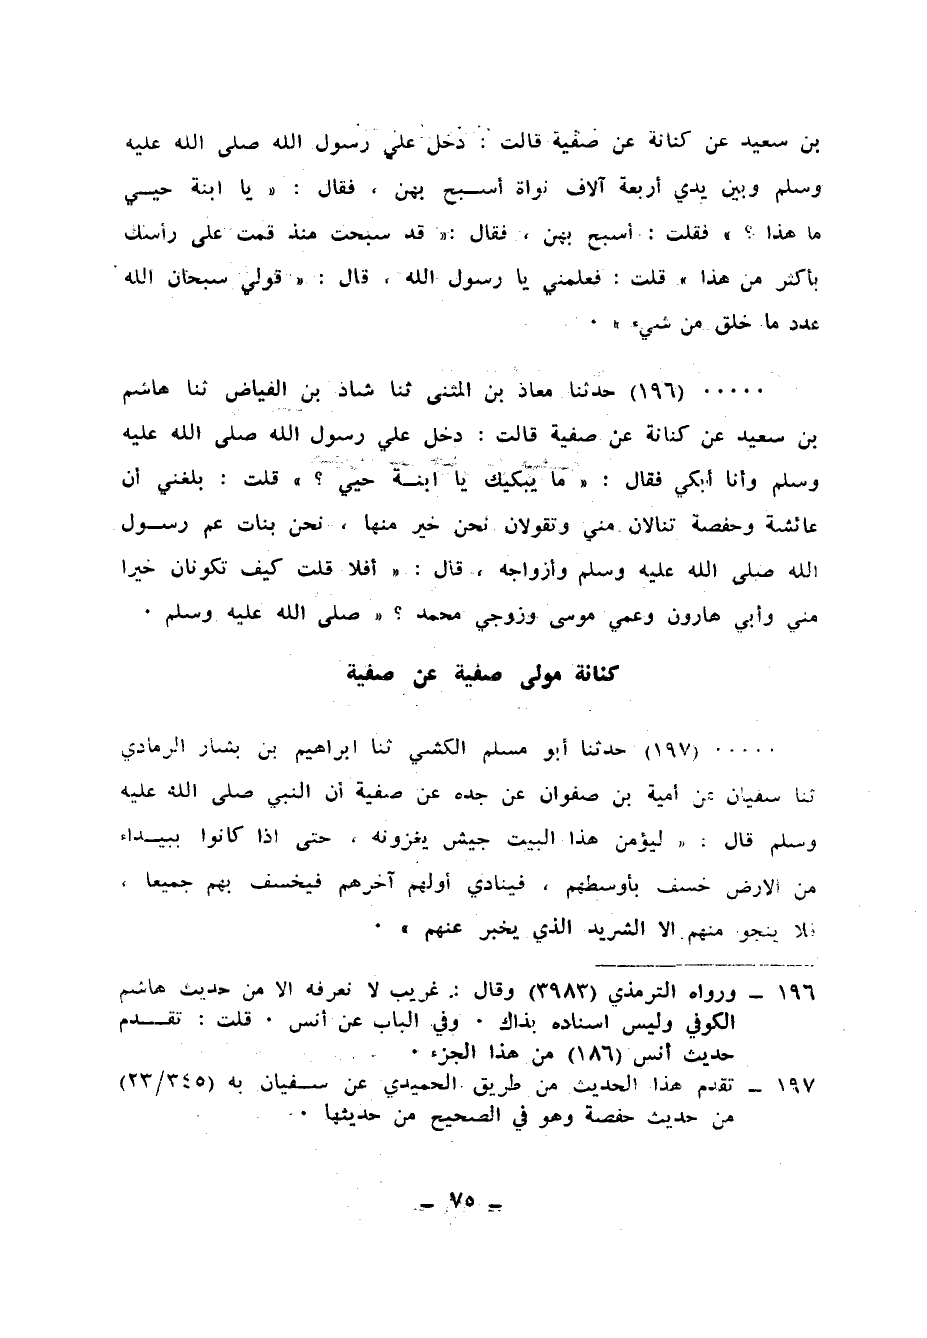 بن سعيد عن كنانة عن صفية قالت : دخل علي رسول الله صلى الله عليه
وسلم وبين يدي أربعة آلاف نواة أسبح بهن ، فقال : « يا ابنة حيي
ما هذا ؟ » فقلت : أسبح بهن ، فقال :« قد سبحت منذ قمت على رأسك
بأكثر من هذا » قلت : فعلمني يا رسول الله ، قال : « قولي سبحان الله
عدد ما خلق من شيء » ٠
٠٠٠٠٠ (١٩٦) حدثنا معاذ بن المثنى ثنا شاذ بن الفياض ثنا هاشم
بن سعيد عن كنانة عن صفية قالت : دخل علي رسول الله صلى الله عليه
وسلم وأنا أبكي فقال : « ما يبكيك يا ابنة حيي ؟ » قلت : بلغني أن
عائشة وحفصة تنالان مني وتقولان نحن خير منها ، نحن بنات عم رسول
الله صلى الله عليه وسلم وأزواجه ، قال : « أفلا قلت كيف تكونان خيرا
مني وأبي هارون وعمي موسى وزوجي محمد ؟ « صلى الله عليه وسلم ٠
كنانة مولى صفية عن صفية
٠٠٠٠٠ (١٩٧) حدثنا أبو مسلم الكشي ثنا ابراهيم بن بشار الرمادي
ثنا سفيان عن أمية بن صفوان عن جده عن صفية أن النبي صلى الله عليه
وسلم قال : « ليؤمن هذا البيت جيش يغزونه ، حتى اذا كانوا ببيداء
من الارض خسف بأوسطهم ، فينادي أولهم آخرهم فيخسف بهم جميعا ،
فلا ينجو منهم الا الشريد الذي يخبر عنهم » ٠
١٩٦ ـ ورواه الترمذي (٣٩٨٣) وقال : غريب لا نعرفه الا من حديث هاشم
الكوفي وليس اسناده بذاك ٠ وفي الباب عن أنس ٠ قلت : تقدم
حديث أنس (١٨٦) من هذا الجزء ٠
١٩٧ ـ تقدم هذا الحديث من طريق الحميدي عن سفيان به (٢٣/٣٤٥)
من حديث حفصة وهو في الصحيح من حديثها ٠
ـ ٧٥ ـ